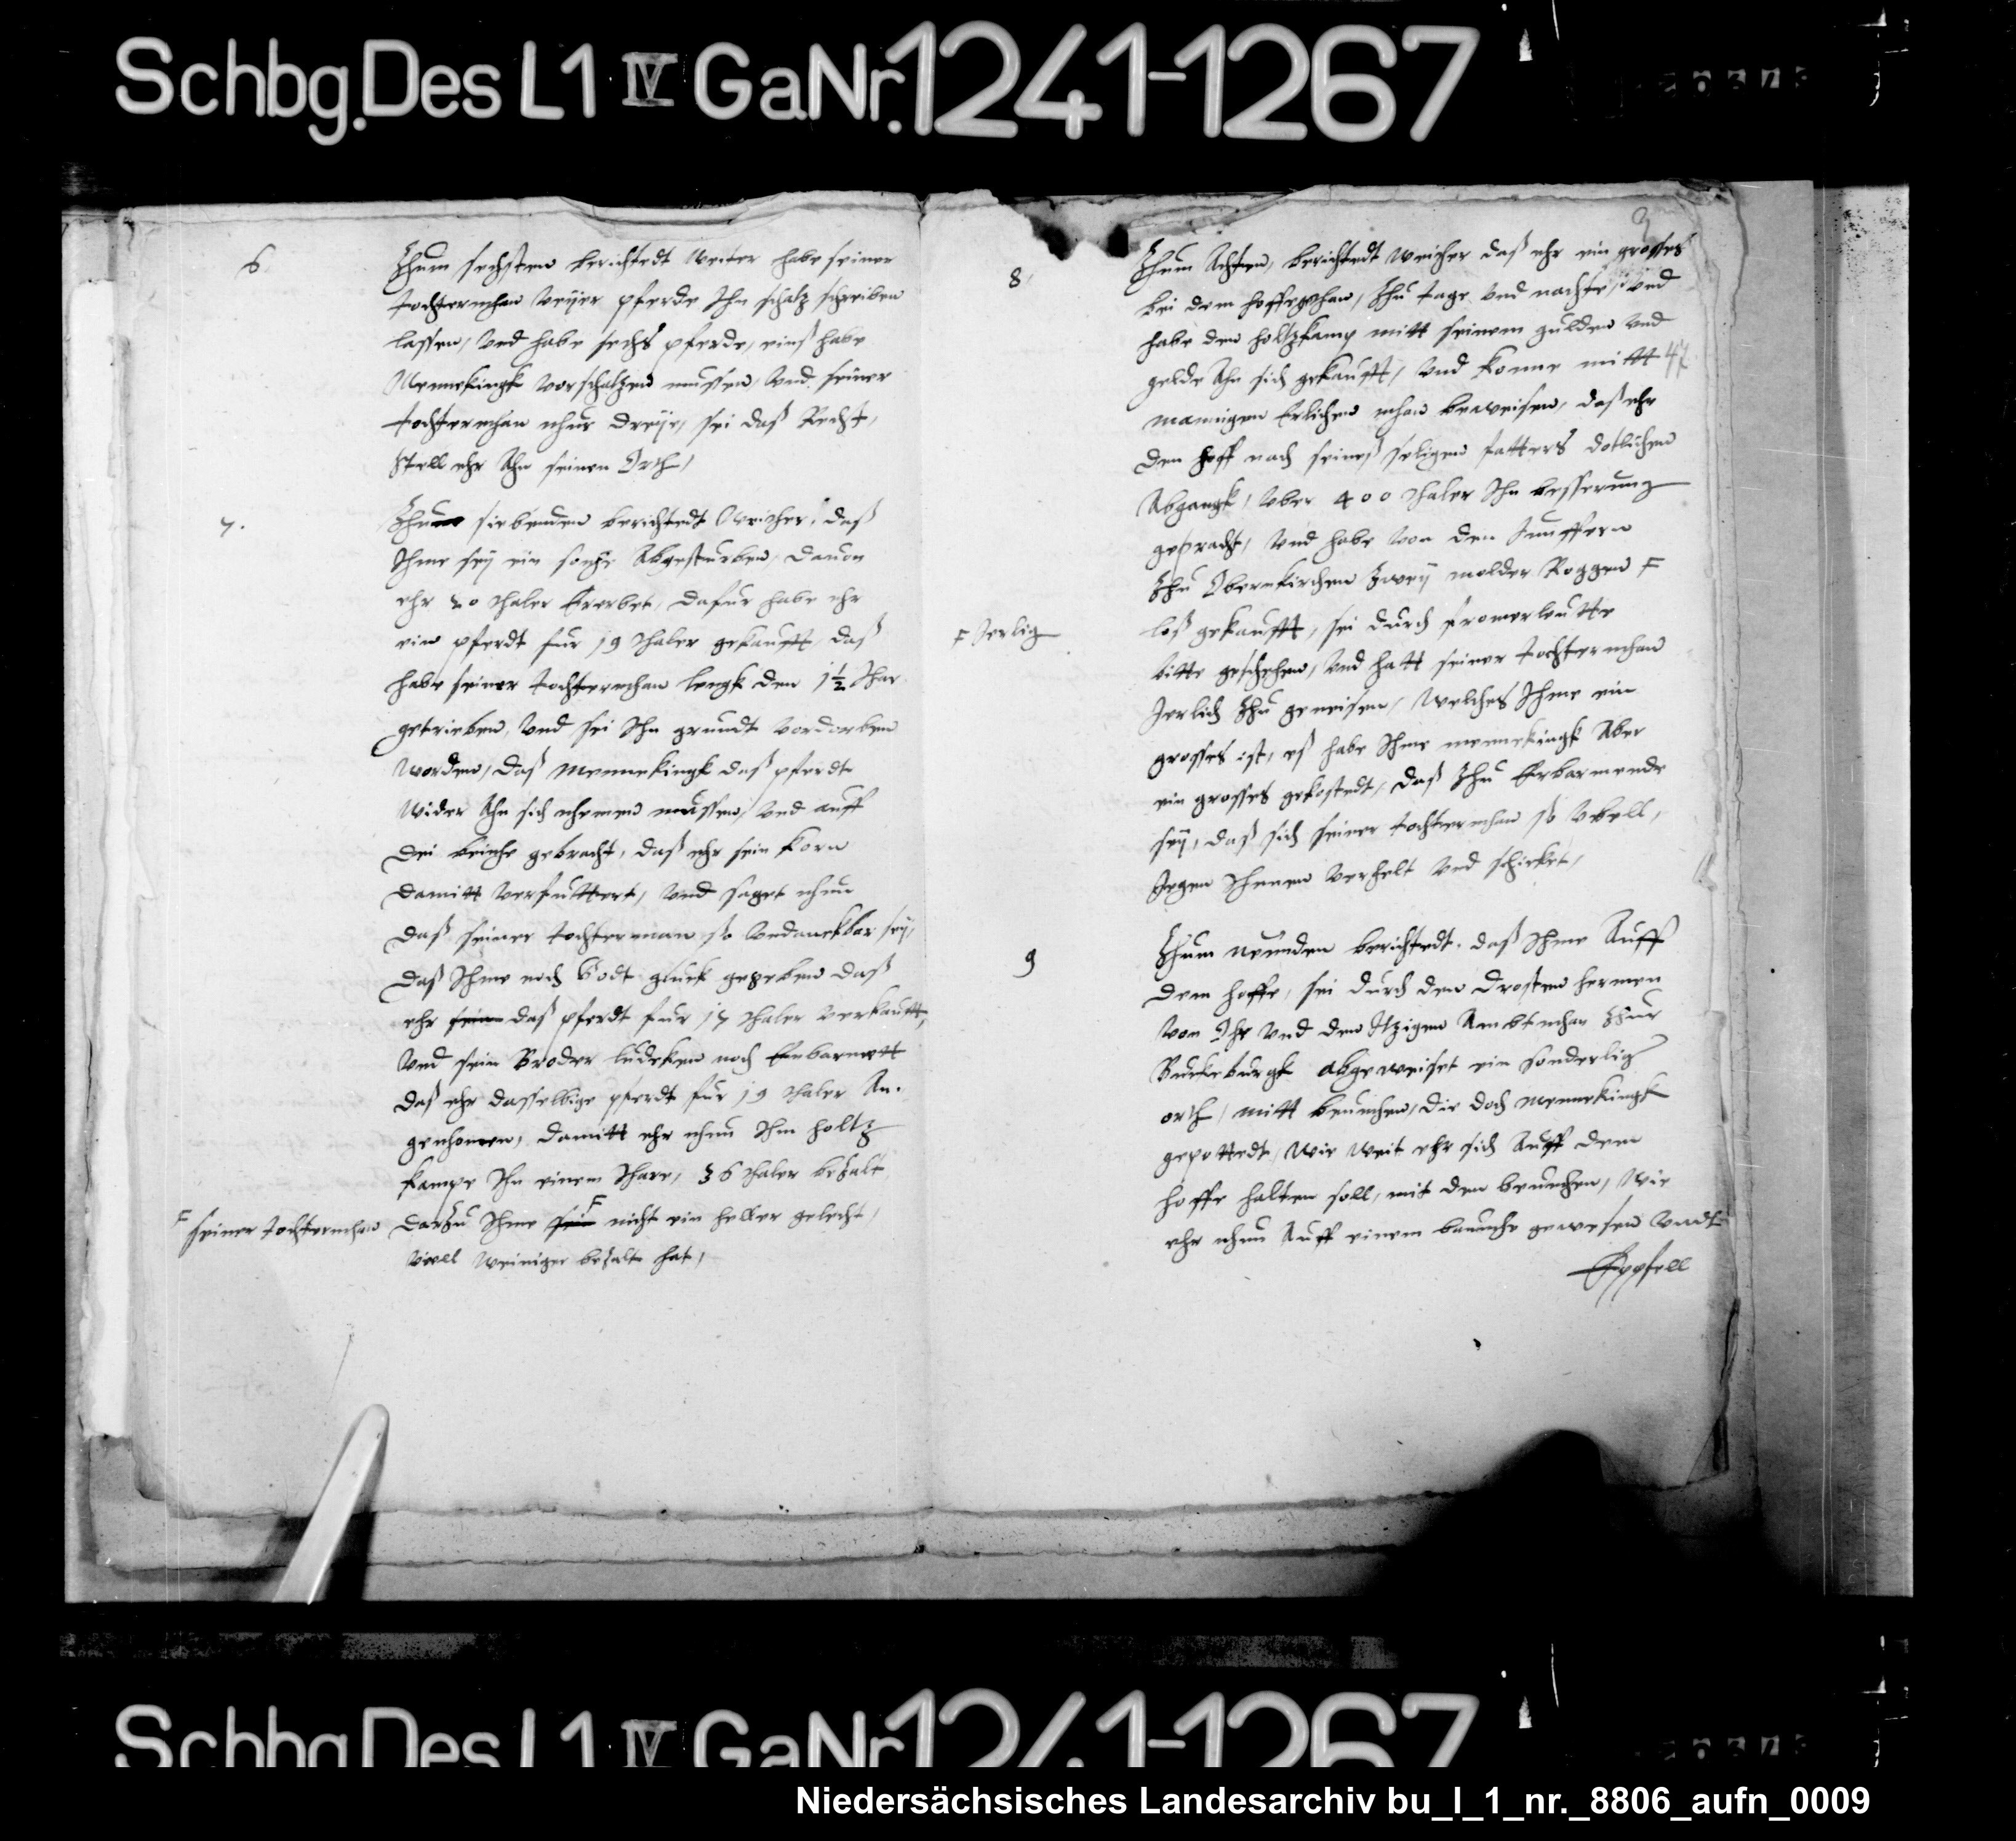 Schbg. Des L1 IV Ga Nr. 1241-1267
6.
Zhum sechsten berichtedt weiter habe seiner
tochtermhan veyer pferde Ihn schatz schreiben
lassen, vnd habe sechs pferde, einß habe
Mennekingk vorschatzen mussen, vnd seiner
tochtermhan nhur dreye, sei daß Recht,
Stell ehr Ahn seinen Orth,
7.
Zhum siebenden berichtedt daß
Ihme sey ein sohne Abgesturben, dauon
ehr 20 thaler Ererbet, dafur habe ehr
ein pferdt fur 19 thaler gekaufft, daß
habe seiner tochtermhan lengk den 1½ Jhar
getrieben, vnd sei Ihn grundt vordorben
worden, daß Mennekingk daß pferdt
wider Ahn sich nhemen mussen, vnd auff
dei beinhe gebracht, daß ehr sein korn
damitt verfuttert, vnd saget nhun
daß seiner tochterman so vndanckbar sey,
daß Ihme noch Godt gluck gegeben daß
ehr sein daß pferdt fur 17 thaler verkaufft,
vnd sein Broder ludeken noch Einbarmett
daß ehr dasselbige pferdt fur 19 thaler An-
genhomen, damitt ehr nhun Ihm holtz
kampe Ihn einem Jhare, 36 thaler bezalt
darzu Ihme sein F nicht ein heller gelecht,
F seiner tochtermhan
viell weiniger bezalt hat,
3
47
8,
Zhum Achten, berichtedt daß ehr ein grosses
bei dem hoffe gethan, Zhu tage vnd nachte, vnd
habe den holtzkamp mitt seinem gulden vnd
gelde Ahn sich gekaufft, vnd konne mitt
mannigen Erlichen mhan beweisen, daß ehr
den hoff nach seineß seligen fatters dotlichen
Abgangk, vber 400 thaler Ihn besserung
gepracht, vnd habe von den Junffern
Zhu Obernkirchen Zwey molder Roggen F
F Jerlig
loß gekaufft, sei durch fromer leutte
bitte geschehen, vnd hatt seiner tochtermhan
Jerlich Zhu geneisen, welches Ihme ein
grosses ist, eß habe Ihme mennekingk Aber
ein grosses gekostedt, daß Zhu Erbarmende
sey, daß sich seiner tochtermhan so vbell,
Jegen Ihmen verhelt vnd schicket,
9
Zhum neunden berichtedt. daß Ihme Auff
dem hoffe, sei durch den Drosten hermen
von Ohr vnd den Itzigen Ambtmhan Zhur
Buckeburgk abgeweiset ein sonderlig
orth, mitt beumhen, die doch Mennekingk
gepottedt, wie weit ehr sich Auff dem
hoffe halten soll, mit den beumhen, wie
ehr nhun Auff einem baumhe gewesen vndt
Eppfell
Schbg. Des L1 IV Ga Nr. 1241-1267
Niedersächsisches Landesarchiv bu_l_1_nr._8806_aufn_0009